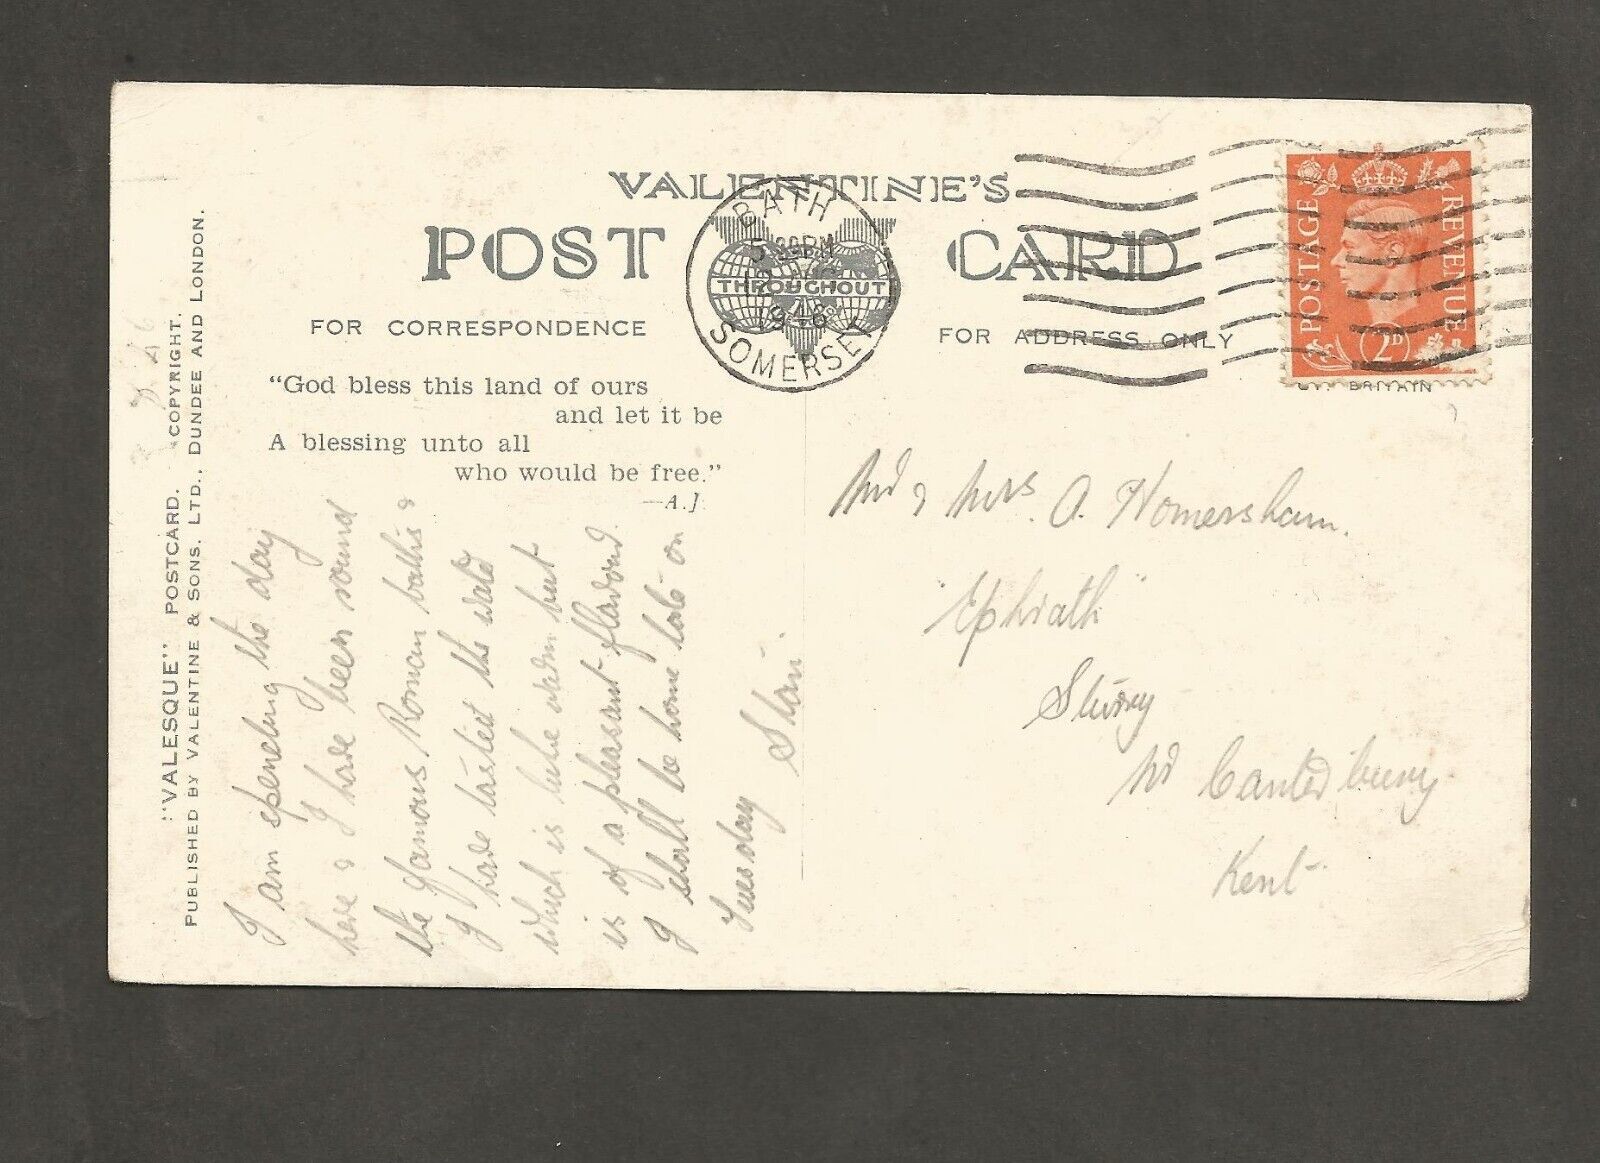 VALENTINE'S
POST CARD
FOR CORRESPONDENCE
FOR ADDRESS ONLY
THROUGHOUT
BATH
5 30PM
1946
SOMERSET
POSTAGE REVENUE
2D
BRITAIN
"God bless this land of ours
and let it be
A blessing unto all
who would be free."
—A.J.
"VALESQUE" POSTCARD. COPYRIGHT.
PUBLISHED BY VALENTINE & SONS. LTD., DUNDEE AND LONDON.
I am spending the day
here & I have been round
the famous Roman baths &
I have tasted the water
which is luke warm but
is of a pleasant flavour.
I shall be home late on
Tuesday
& Mrs. A. Nomersham.
"Ephrath"
Sturry
Nr Canterbury
Kent